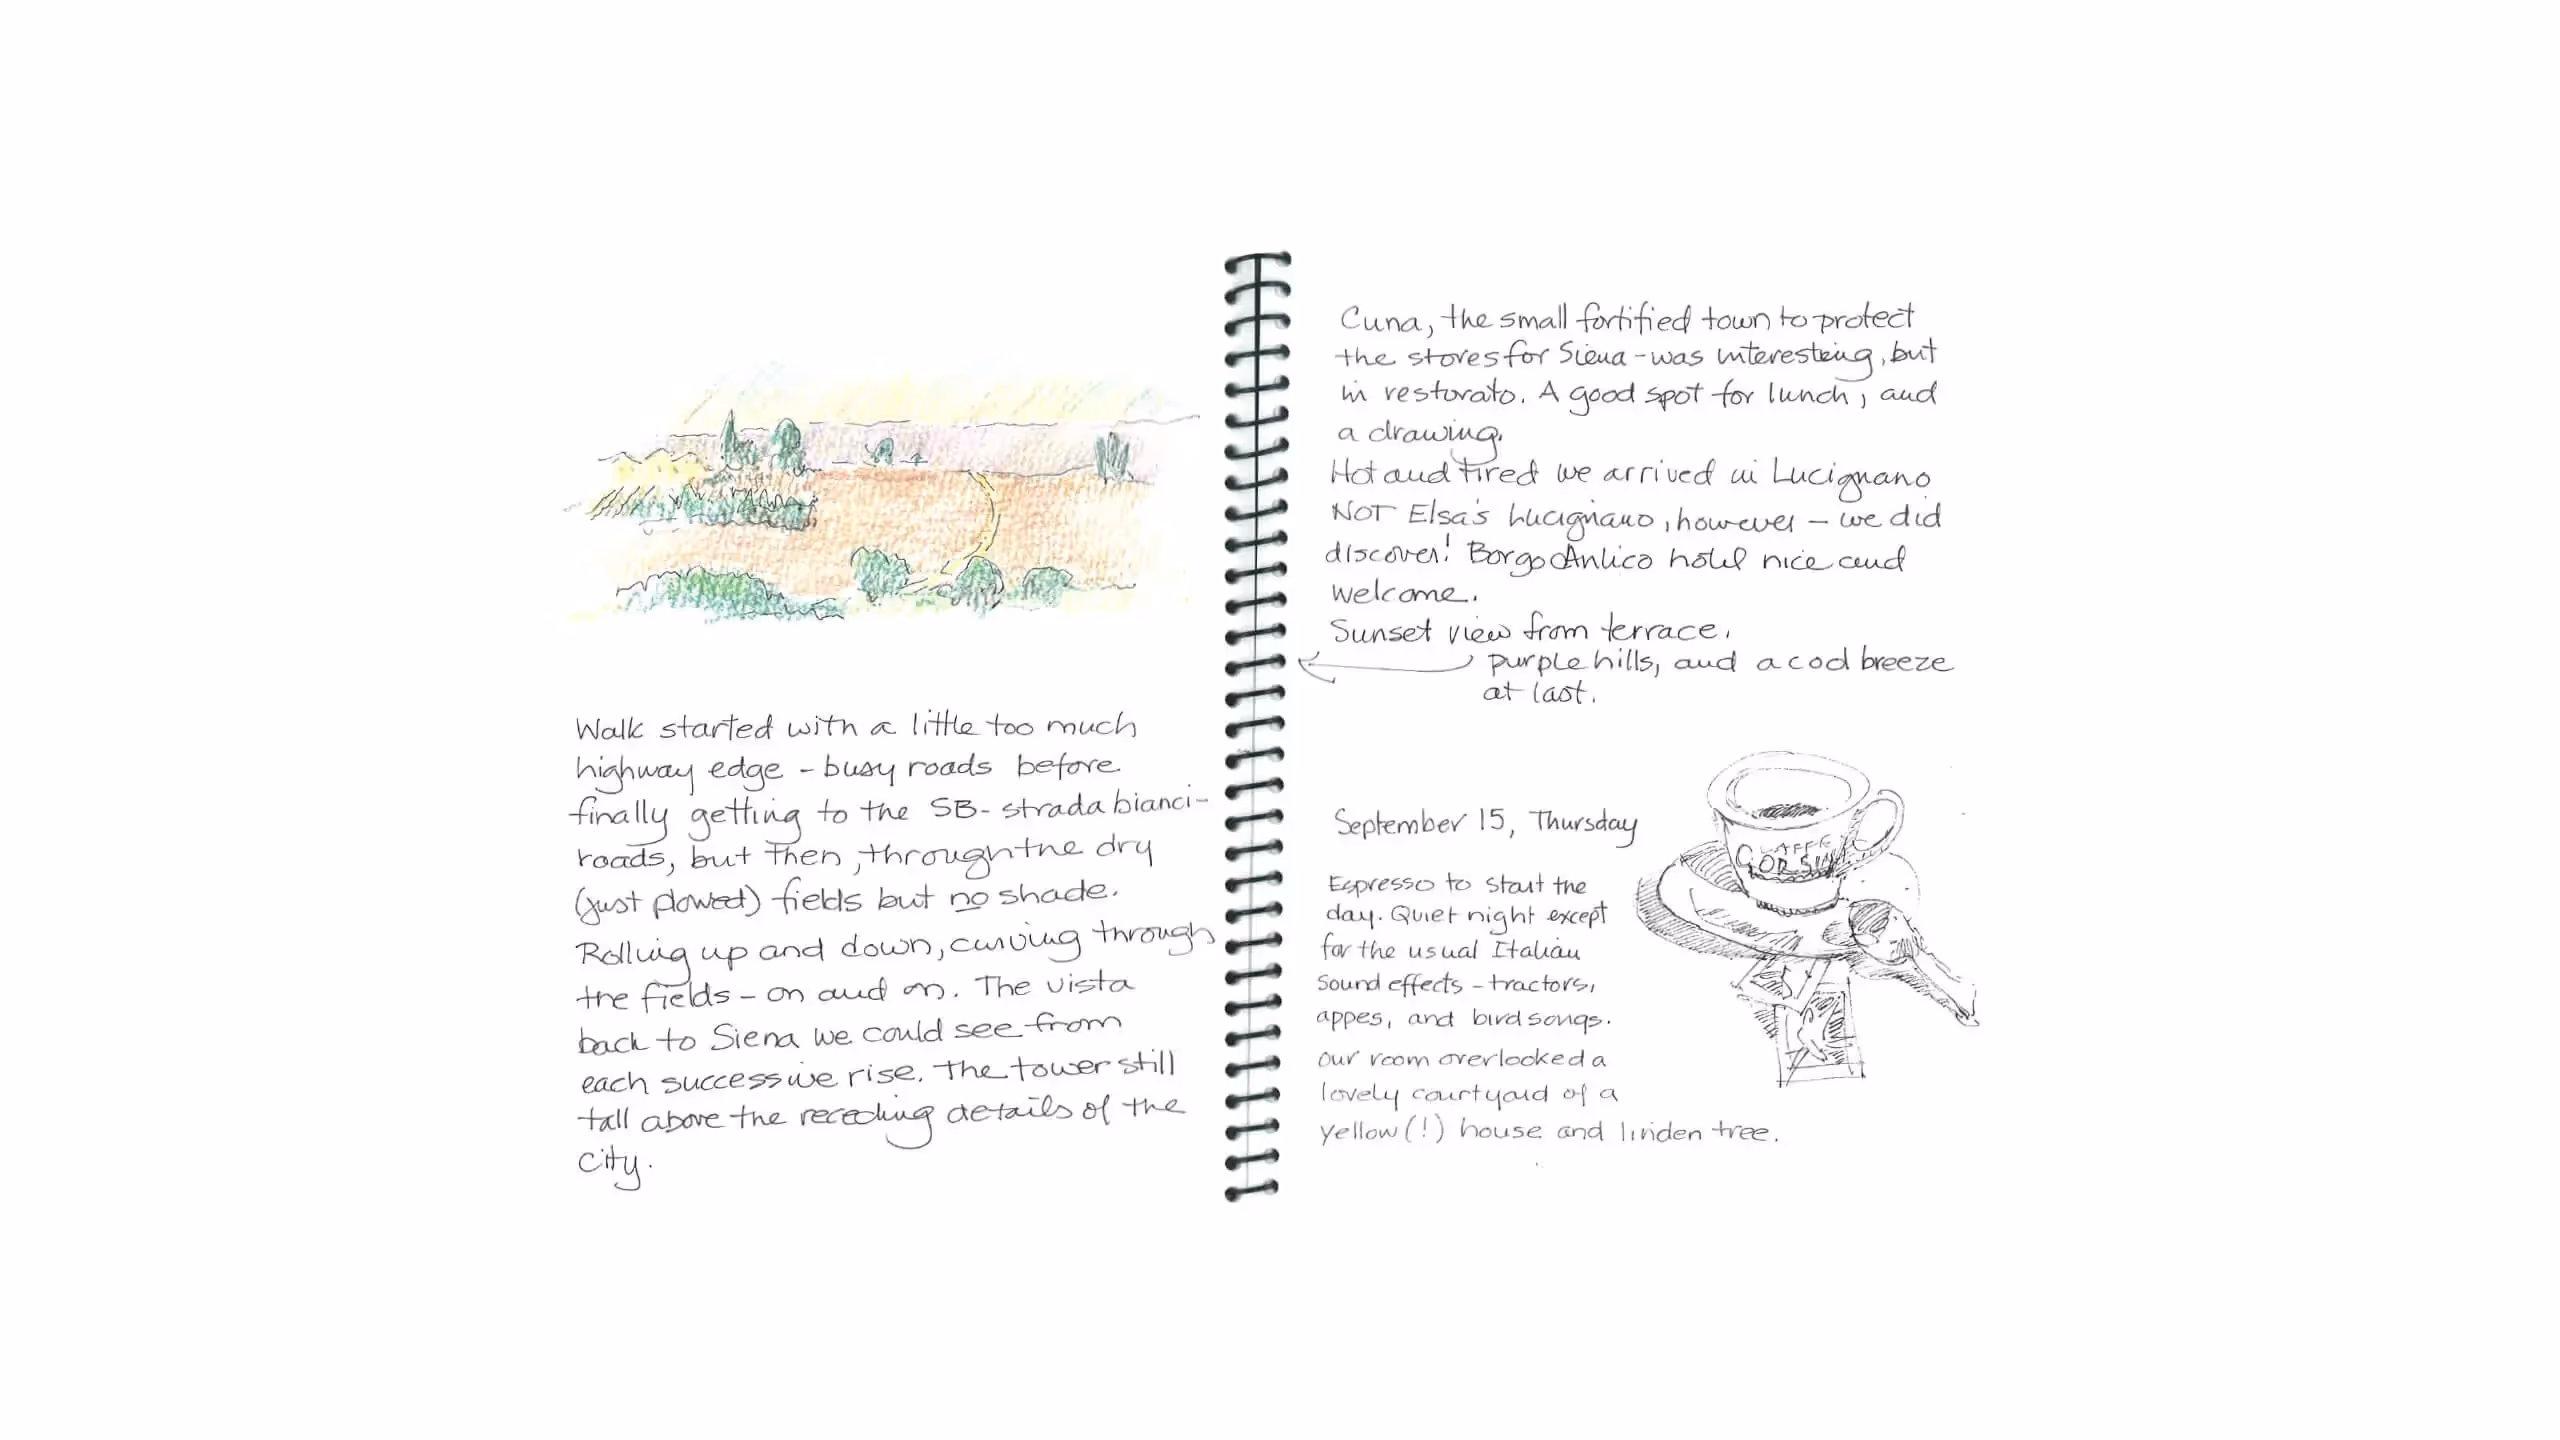 Walk started with a little too much
highway edge - busy roads before
finally getting to the SB - strada bianci -
roads, but then, through the dry
(just plowed) fields but no shade.
Rolling up and down, curving through
the fields - on and on. The vista
back to Siena we could see from
each successive rise. The tower still
tall above the receding details of the
city.
Cuna, the small fortified town to protect
the stores for Siena - was interesting, but
in restorato. A good spot for lunch, and
a drawing.
Hot and tired we arrived in Lucignano
NOT Elsa's Lucignano, however - we did
discover! Borgo Antico hotel nice and
welcome.
Sunset view from terrace.
purple hills, and a cool breeze
at last.
September 15, Thursday
CAFFE
CORSINI
Espresso to start the
day. Quiet night except
for the usual Italian
sound effects - tractors,
appes, and bird songs.
Our room overlooked a
lovely courtyard of a
yellow (!) house and linden tree.